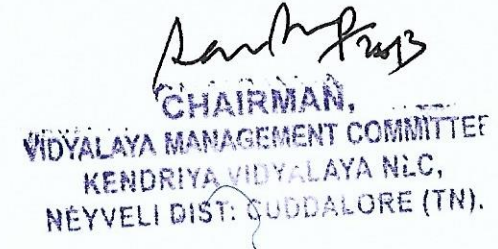 CHAIRMAN,
VIDYALAYA MANAGEMENT COMMITTEE
KENDRIYA VIDYALAYA NLC,
NEYVELI DIST: CUDDALORE (TN).